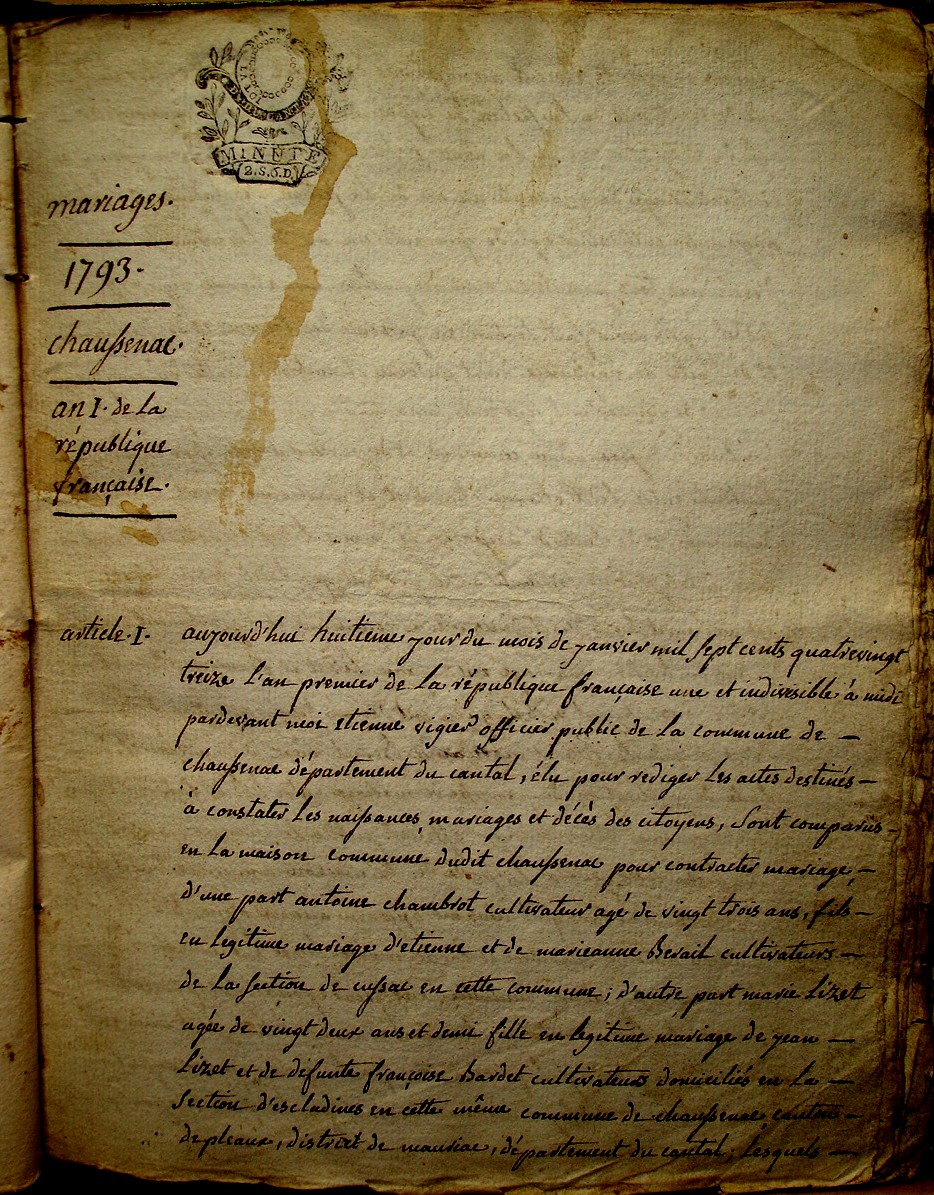 MINUTE
2. S. 6. D.
mariages.
1793.
chaussenac.
an I. de la
république
française.
article. I. aujourd'hui huitieme jour du mois de janvier mil sept cents quatrevingt
treize l'an premier de la république française une et indivisible à midi
pardevant moi etienne vigier officier public de la commune de —
chaussenac département du cantal, élu pour rediger les actes destinés —
à constater les naissances, mariages et décès des citoyens, sont comparus —
en la maison commune dudit chaussenac pour contracter mariage, —
d'une part antoine chambrot cultivateur agé de vingt trois ans, fils —
en legitime mariage d'etienne et de marieanne Berail cultivateurs —
de la section de cussac en cette commune; d'autre part marie Lizet
agée de vingt deux ans et demi fille en legitime mariage de jean —
Lizet et de défunte françoise Bardet cultivateurs domiciliés en la —
section d'escladines en cette même commune de chaussenac canton —
de pleaux, district de mauriac, département du cantal; lesquels —